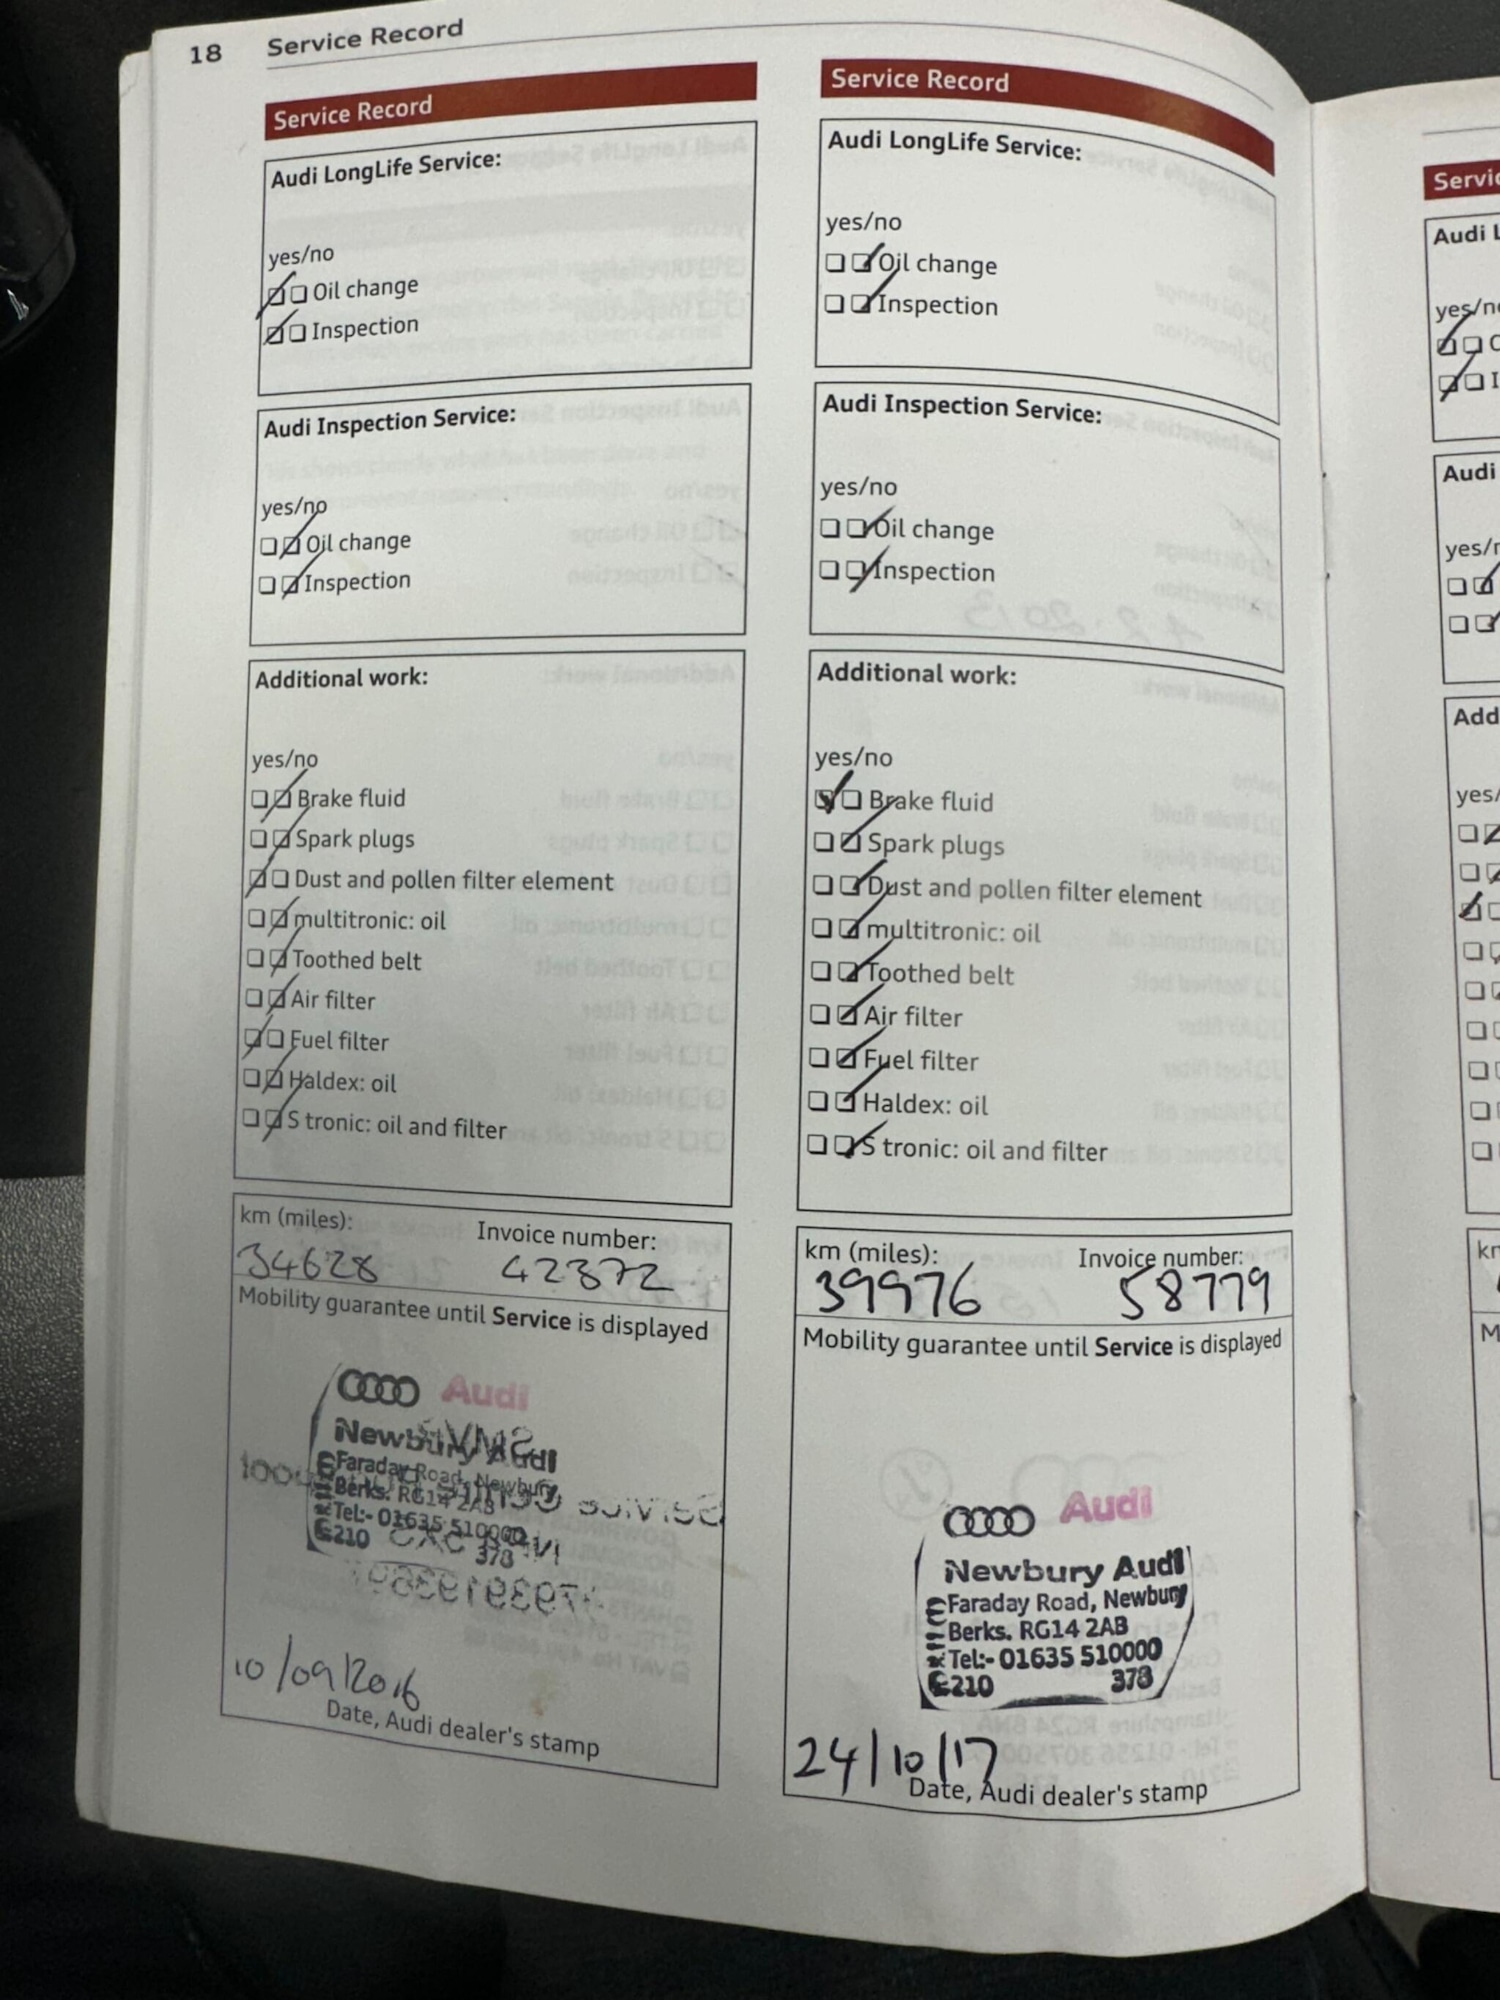 18 Service Record
Service Record
Audi LongLife Service:
yes/no
Oil change
Inspection
Audi Inspection Service:
yes/no
Oil change
Inspection
Additional work:
yes/no
Brake fluid
Spark plugs
Dust and pollen filter element
multitronic: oil
Toothed belt
Air filter
Fuel filter
Haldex: oil
S tronic: oil and filter
km (miles): Invoice number:
34628 42372
Mobility guarantee until Service is displayed
Audi
Newbury Audi
Faraday Road, Newbury
Berks. RG14 2AB
Tel:- 01635 510000
210 378
10/09/2016
Date, Audi dealer's stamp
Service Record
Audi LongLife Service:
yes/no
Oil change
Inspection
Audi Inspection Service:
yes/no
Oil change
Inspection
Additional work:
yes/no
Brake fluid
Spark plugs
Dust and pollen filter element
multitronic: oil
Toothed belt
Air filter
Fuel filter
Haldex: oil
S tronic: oil and filter
km (miles): Invoice number:
39976 58779
Mobility guarantee until Service is displayed
Audi
Newbury Audi
Faraday Road, Newbury
Berks. RG14 2AB
Tel:- 01635 510000
210 378
24/10/17
Date, Audi dealer's stamp
Audi
yes/
Audi
yes/
yes/